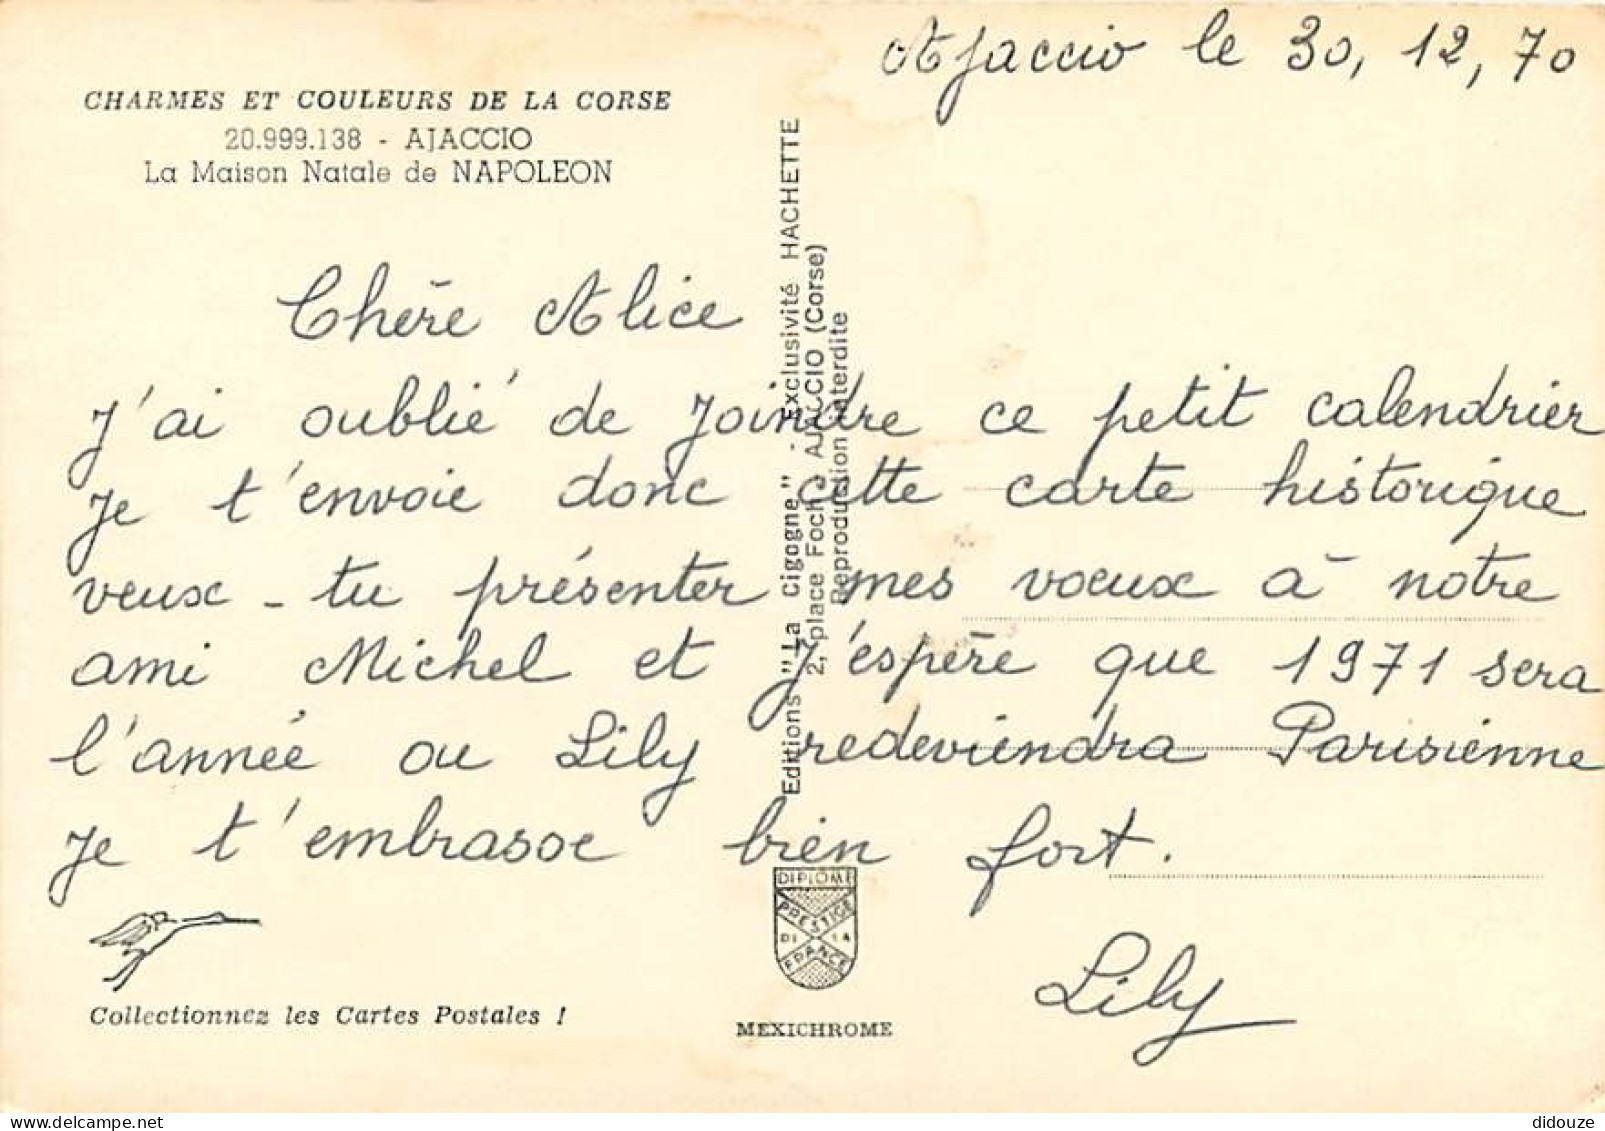 Ajaccio le 30, 12, 70
CHARMES ET COULEURS DE LA CORSE
20.999.138 - AJACCIO
La Maison Natale de NAPOLEON
Chère Alice
J'ai oublié de joindre ce petit calendrier
je t'envoie donc cette carte historique
veux-tu présenter mes voeux à notre
ami Michel et j'éspère que 1971 sera
l'année ou Lily redeviendra Parisienne
je t'embrasse bien fort.
Lily
Editions "La Cigogne" - Exclusivité HACHETTE
2, place Foch - AJACCIO (Corse)
Reproduction interdite
DIPLOME
PRESTIGE
DE LA
FRANCE
Collectionnez les Cartes Postales !
MEXICHROME
didouze